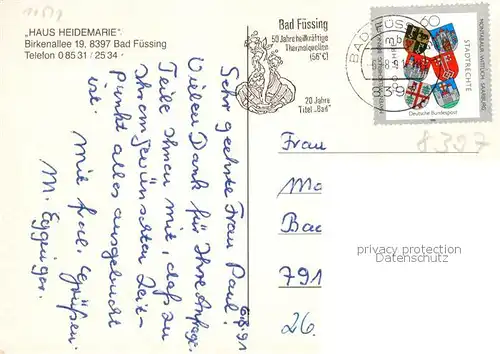 „HAUS HEIDEMARIE"
Birkenallee 19, 8397 Bad Füssing
Telefon 0 85 31 / 25 34
Bad Füssing
50 Jahre heilkräftige
Thermalquellen
(56°C)
20 Jahre
Titel „Bad"
BAD FÜSS
mb
839
60
STADTRECHTE
Deutsche Bundespost
8397
6.8.91
Sehr geehrte Frau Paul!
Vielen Dank für Ihre Anfrage.
Teile Ihnen mit, daß zu
Ihrem gewünschten Zeit-
punkt alles ausgebucht
ist.
Mit frdl. Grüßen.
M. Egginger.
Frau
Ma
Bac
791
26.
privacy protection
oldthing.de